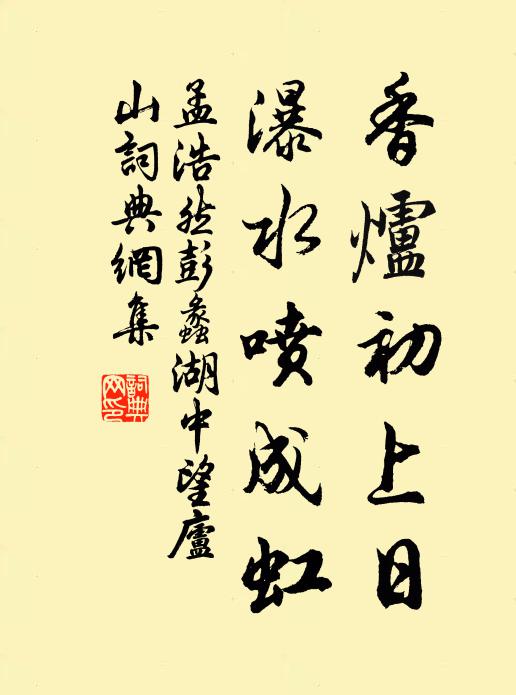 香爐初上日
瀑水喷成虹
孟浩然彭蠡湖中望廬
山詞典網集
詞典
网印